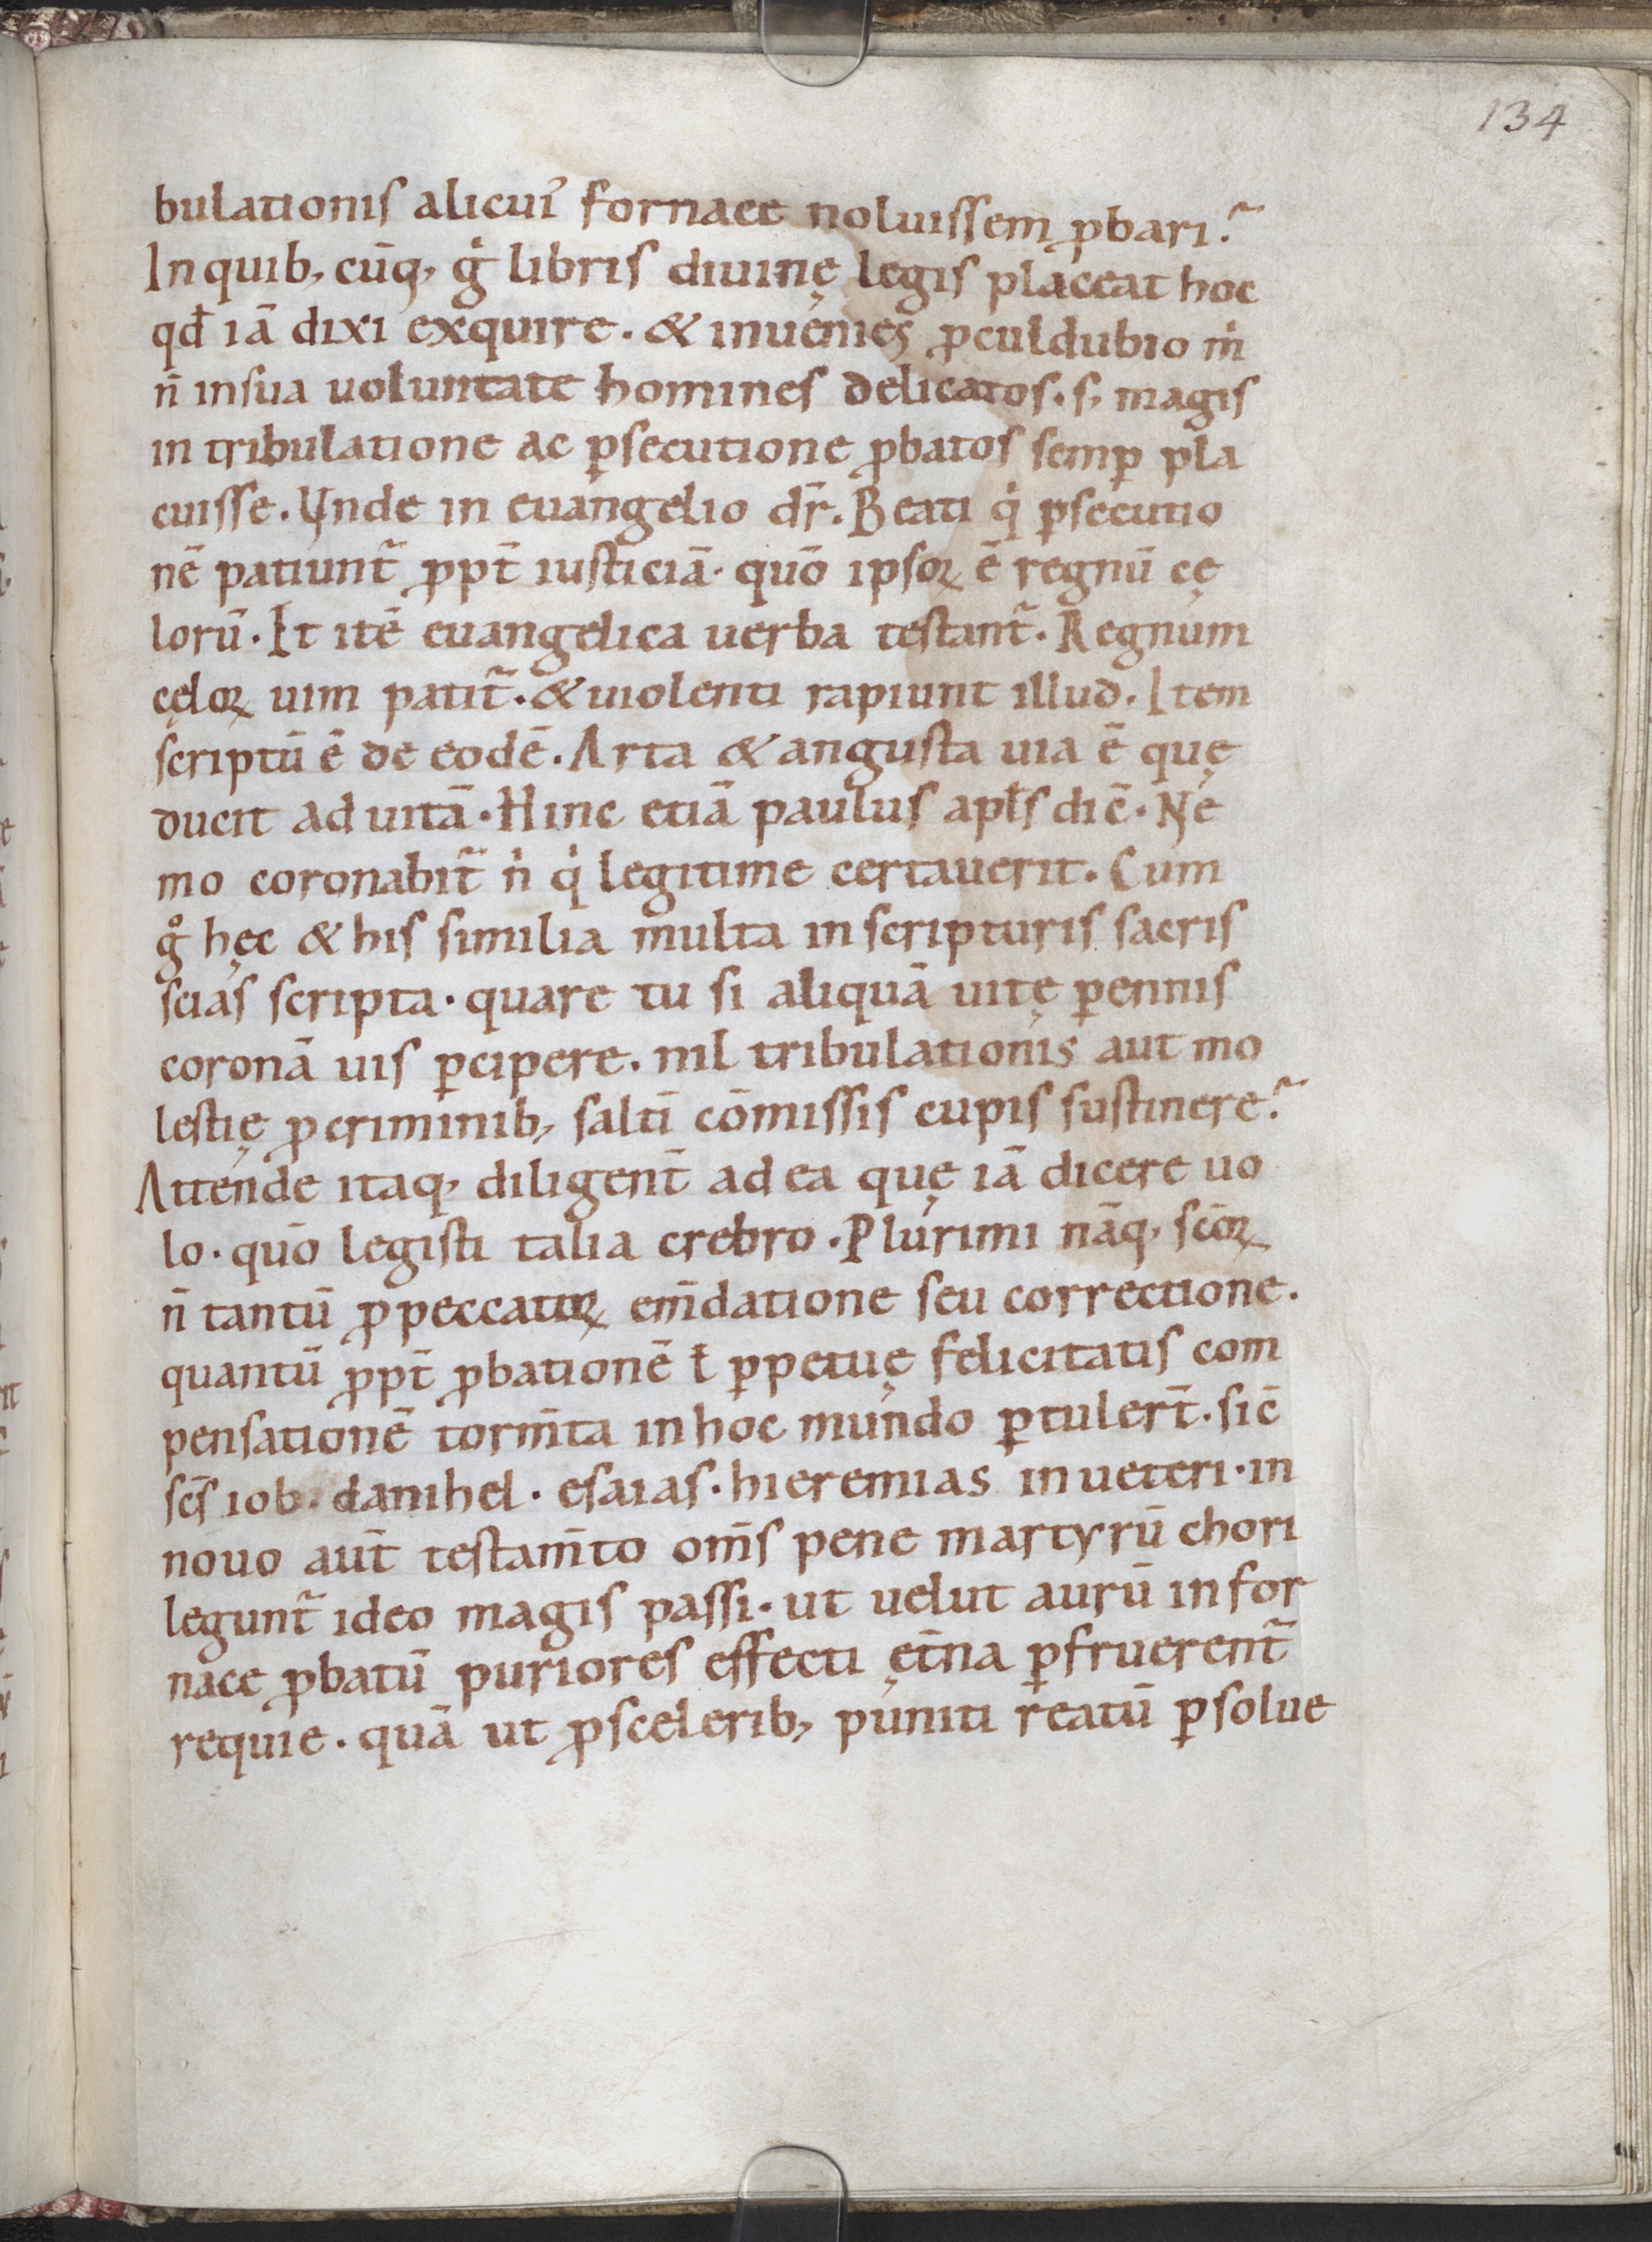 134
bulationis alicui᾽ fornace noluissem ꝓbari.᷉
In quib, cūq, gͥ libris diuinę legis placeat hoc
qđ iā dixi exquire. & inuenies ꝓculdubio mͥ
n̄ insua uoluntate homines delicatos. s, magis
in tribulatione ac ꝑsecutione ꝓbatos semꝑ pla
cuisse. Unde in euangelio dr̄. Beati qͥ ꝑsecutio
nē patiunt᷉ ꝓpt̄ iusticiā. quō ipsoꝝ ē regnū cę
lorū. Et itē euangelica uerba testant᷉. Regnum
cęloꝝ uim patit᷉. & uiolenti rapiunt illud. Item
scriptū ē de eodē. Arta & angusta uia ē quę
ducit ad uitā. Hinc etiā paulus apl̄s dic̄. Ne
mo coronabit᷉ nͥ qͥ legitime certauerit. Cum
gͦ hęc & his similia multa in scripturis sacris
scias scripta. quare tu si aliquā uitę ꝑennis
coronā uis ꝑcipere. nil tribulationis aut mo
lestię ꝓ criminib, saltī cōmissis cupis sustinere.᷉
Attende itaq, diligent̄ ad ea quę iā dicere uo
lo. quō legisti talia crebro. Plurimi nāq, sc̄oꝝ
n̄ tantū ꝓ peccatoꝝ em̄datione seu correctione.
quantū ꝓpt̄ ꝓbationē ł ꝑpetuę felicitatis com
pensationē torm̄ta in hoc mundo ꝑtulert̄. sic̄
sc̄s iob. danihel. esaias. hieremias in ueteri. in
nouo aut̄ testam̄to om̄s pene martyrū chori
legunt᷉ ideo magis passi. ut uelut aurū in for
nace ꝓbatū puriores effecti ęt̄na ꝑfruerent᷉
requie. quā ut ꝓ scelerib, puniti reatū ꝑsolue